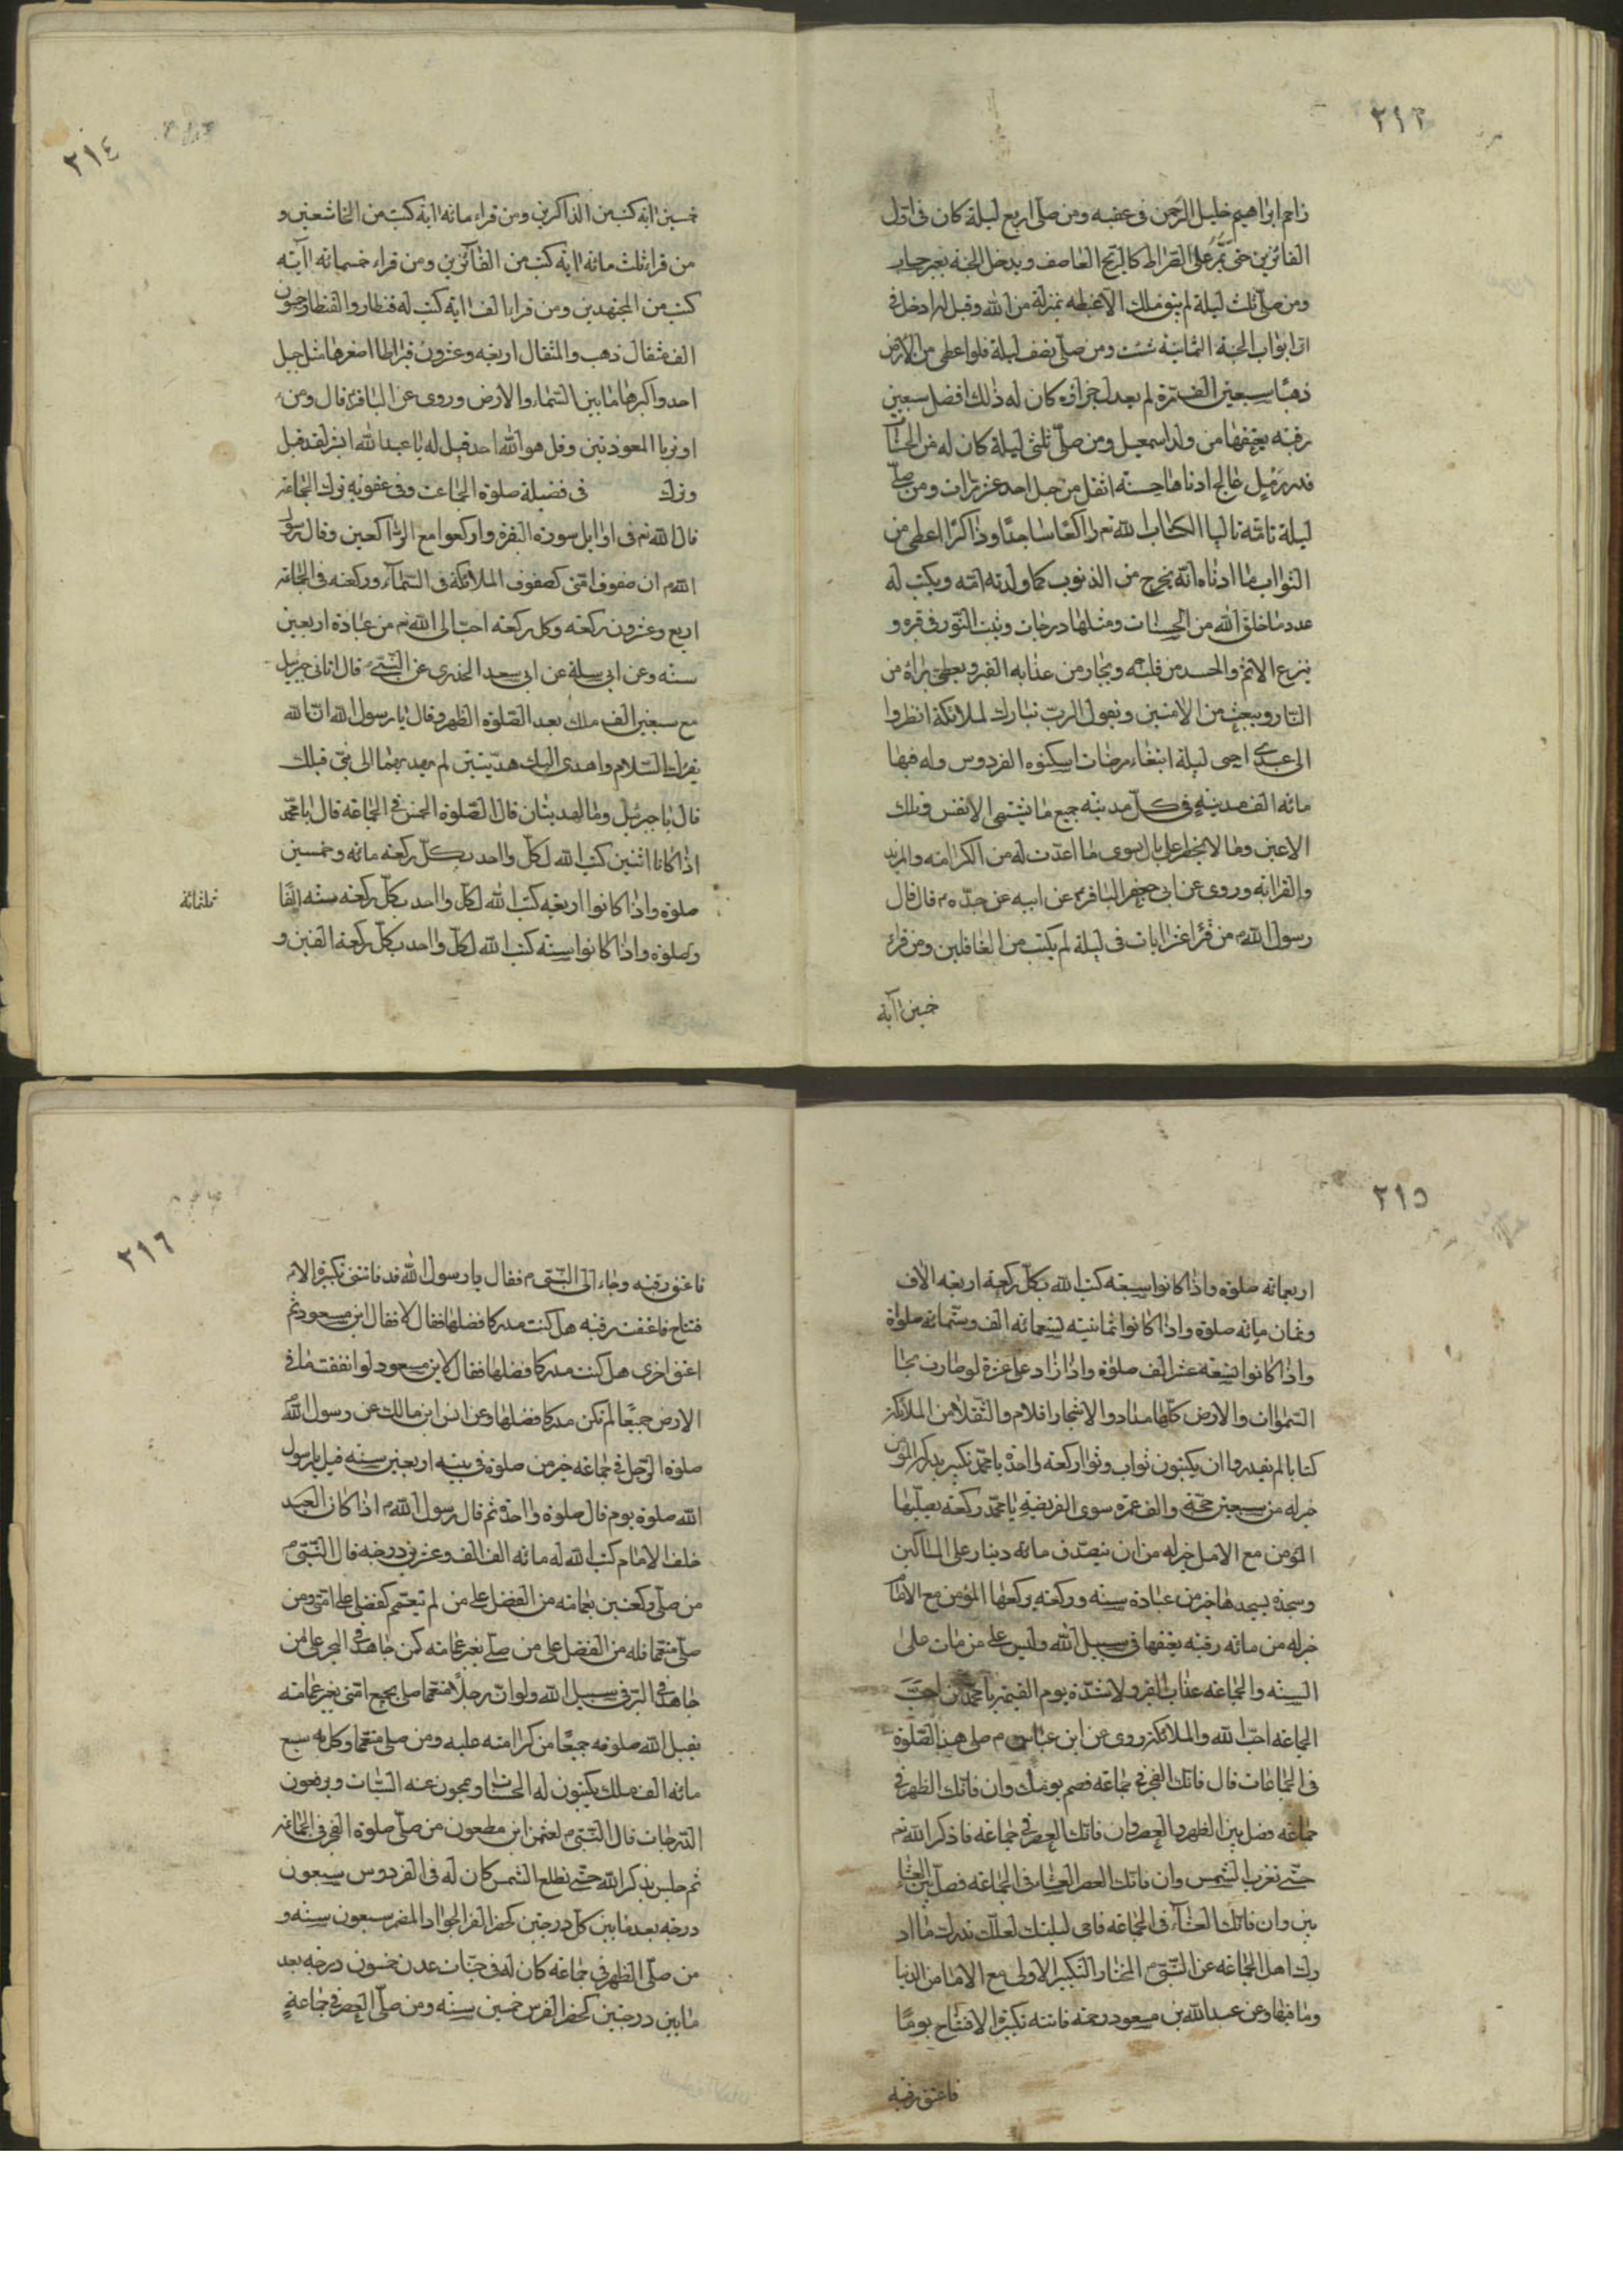 ٢١٣
زاحم ابراهيم خليل الرحمن فى قبته ومن صلى اربع ليلة كان فى اول
الفائزين حتى يمر على الصراط كالريح العاصف ويدخل الجنة بغير حساب
ومن صلى ثلث ليلة لم يبق ملك الا غبطه بمنزلته من الله وقيل له ادخل فى
اى ابواب الجنة الثمانية شئت ومن صلى نصف ليلة فلو اعطى من الارض
ذهبا سبعين الف مرة لم يعدل جزاؤه كان له ذلك افضل سبعين
رقبة يعتقها من ولد اسمعيل ومن صلى ثلثى ليلة كان له من الحسنات
قدر رمل عالج ادناها حسنة اثقل من جبل احد عشر مرات ومن صلى
ليلة تامة تاليا لكتاب الله تم راكعا ساجدا وذاكرا اعطى من
الثواب ما ادناه انه يخرج من الذنوب كما ولدته امه ويكتب له
عدد ما خلق الله من الحسنات ومثلها درجات ويثبت النور فى قبره و
ينزع الاثم والحسد من قلبه ويجار من عذابه القبر ويعطى براة من
النار ويبعث من الامنين ويقول الرب تبارك لملائكة انظروا
الى عبدى احيى ليلة ابتغاء مرضات اسكنوه الفردوس وله فيها
مائة الف مدينة فى كل مدينة جميع ما يشتهى الانفس وتلك
الاعين وما لا يخطر على بال سوى ما اعدت له من الكرامة والمزيد
والقرابة وروى عن ابى جعفر الباقر عن ابيه عن جده م قال قال
رسول الله م من قرا عشر ايات فى ليلة لم يكتب من الغافلين ومن قرء
خمسين آية
٢١٤
خمسين اية كتب من الذاكرين ومن قراء مائة اية كتب من الخاشعين و
من قراء ثلث مائة اية كتب من الفائزين ومن قراء خمسمائة اية
كتب من المجتهدين ومن قراء الف اية كتب له قنطار والقنطار خمسون
الف مثقال ذهب والمثقال اربعة وعشرون قيراطا اصغرها مثل جبل
احد واكبرها ما بين السماء والارض وروى عن الباقر قال ومن
اوتر با المعوذتين وقل هو الله احد قيل له يا عبد الله ابشر لقد قبل
وترك فى فضيلة صلوة الجماعت وفى عقوبة ترك الجماعة
قال الله تم فى اوايل سورة البقرة واركعوا مع الراكعين وقال رسول
الله م ان صفوف امتى كصفوف الملائكة فى السماء وركعة فى الجماعة
اربع وعشرون ركعة وكل ركعة احب الى الله تم من عبادة اربعين
سنة وعن ابى سلمة عن ابى سعيد الخدرى عن النبى م قال اتانى جبريل
مع سبعين الف ملك بعد الصلوة الظهر وقال يا رسول الله ان الله
يقرئك السلام واهدى اليك هديتين لم يهد بهما الى نبى قبلك
قال يا جبرئيل وما الهديتان قال الصلوة الخمس فى الجماعة قال يا محمد
اذا كانا اثنين كتب الله لكل واحد بكل ركعة مائة وخمسين
صلوة واذا كانوا اربعة كتب الله لكل واحد بكل ركعة ستة الفا
ثلثمائة
وصلوة واذا كانوا ستة كتب الله لكل واحد بكل ركعة الفين و
٢١٥
اربعمائة صلوة واذا كانوا سبعة كتب الله بكل ركعة اربعة الاف
وثمان مائة صلوة واذا كانوا ثمانية تسعمائة الف وستمائة صلواة
واذا كانوا تسعة عشر الف صلوة واذا زاد على عشرة لو صارت بحا
السموات والارض كلها مداد والاشجار اقلام والثقلاهن الملائكة
كتابا لم يقدروا ان يكتبون ثواب ركعة واحدة يا محمد تكبير يدركه المؤمن
خير له من سبعين حجة والف عمرة سوى الفريضة يا محمد ركعة يصليها
المؤمن مع الامل خير له من ان يتصدق مائة دينار على المساكين
وسجدة يسجدها خير من عبادة سنة وركعة يركعها المؤمن مع الامام
خير له من مائة رقبة يعتقها فى سبيل الله وليس على من مات على
السنة والجماعة عذاب القبر ولا شدة يوم القيمة يا محمد من احب
الجماعة احب الله والملائكة روى عن ابن عباس م صلى هذا الصلوة
فى الجماعات قال فاتك الفجر فى جماعة فصم يومك وان فاتك الظهر فى
جماعة فصل بين الظهر والعصر وان فاتك العصر فى جماعة فاذكر الله تم
حتى تغرب الشمس وان فاتك العصر العشاء فى الجماعة فصل بين العشاء
ين وان فاتك العشاء فى الجماعة فاحى ليلتك لعلك تدرك ما اد
رك اهل الجماعة عن النبى م المختار التكبير الاولى مع الامام من الدنيا
وما فيها وعن عبد الله بن مسعود رحمة فاتته تكبيرة الافتتاح يوما
فاعتق رقبة
٢١٦
فاعتق رقبة وجاء الى النبى م فقال يا رسول الله قد فاتتنى تكبيرة الا
فتتاح فاعتقت رقبة هل كنت مدركا فضلها فقال لا فقال ابن مسعود ثم
اعتق اخرى هل كنت مدركا فضلها فقال لا بن مسعود لو انفقت ما فى
الارض جميعا لم تكن مدركا فضلها وعن انس ابن مالك عن رسول الله
صلوة الرجل فى جماعة خير من صلوة فى بيته اربعين سنة قيل يا رسول
الله صلوة يوم قال صلوة واحدة ثم قال رسول الله م اذا كان العبد
خلف الامام كتب الله له مائة الف الف وعشرين درجة قال النبى م
من صلى ركعتين بعمامة من الفضل على من لم يتعمم كفضلى على امتى ومن
صلى متعمما فله من الفضل على من صلى بغير عمامة كمن جاهد فى البحر على من
جاهد فى البر فى سبيل الله ولو ان رجلا متعمما صلى بجميع امتى بغير عمامة
تقبل الله صلوته جميعا من كرامته عليه ومن صلى متعمما وكل به سبع
مائة الف ملك يكتبون له الحسنات ويمحون عنه السيئات ويرفعون
الدرجات قال النبى م لعثمن ابن مظعون من صلى صلوة الفجر فى الجماعة
ثم جلس يذكر الله حتى تطلع الشمس كان له فى الفردوس سبعون
درجة بعد ما بين كل درجتين كحضر الفرس الجواد المضمر سبعون سنة و
من صلى الظهر فى جماعة كان له فى جنات عدن خمسون درجة بعد
ما بين درجتين كحضر الفرس خمسين سنة ومن صلى العصر فى جماعة